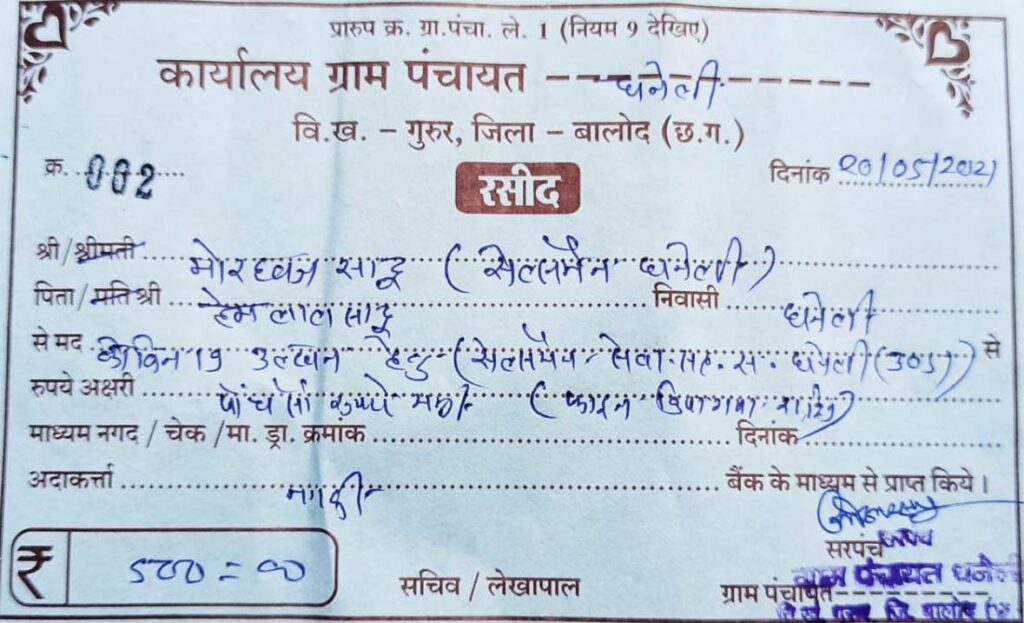 प्रारुप क्र. ग्रा.पंचा. ले. 1 (नियम 9 देखिए)
कार्यालय ग्राम पंचायत धनेली
वि.ख. – गुरुर, जिला – बालोद (छ.ग.)
क्र. 002
रसीद
दिनांक 20/05/2021
श्री/श्रीमती मोरध्वज साहू (सेल्समैन धनेली)
पिता/पति श्री हेमलाल साहू निवासी धनेली
से मद कोविन 19 उल्लंघन हेतु (सेल्समैन सेवा सह. स. धनेली से
रुपये अक्षरी पाँच सौ रुपये मात्र (फाइन किया गया राशि)
माध्यम नगद / चेक /मा. ड्रा. क्रमांक दिनांक
अदाकर्त्ता बैंक के माध्यम से प्राप्त किये।
₹ 500 = 00
सचिव / लेखापाल
सरपंच
ग्राम पंचायत
ग्राम पंचायत धनेली